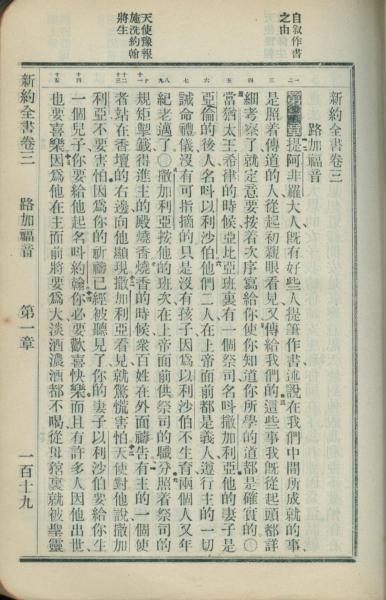 自叙作書
之由
天使豫報
施洗約翰
將生
新約全書卷三
路加福音
第一章
一百十九
新約全書卷三
路加福音
提阿非羅大人旣有好些人提筆作書述說在我們中間所成就的事
是照着傳道的人從起初親眼看見又傳給我們的這些事我旣從起頭都詳
細考察了就定意要按着次序寫給你使你知道你所學的道都是確實的〇
當猶太王希律的時候亞比亞班裏有一個祭司名呌撒加利亞他的妻子是
亞倫的後人名呌以利沙伯他們二人在上帝面前都是義人遵行主的一切
誡命禮儀沒有可指摘的只是沒有孩子因爲以利沙伯不生育兩個人又年
紀老邁了〇撒加利亞按他的班次在上帝面前供祭司的職分照着祭司的
規矩掣籤得進主的殿燒香燒香的時候衆百姓在外面禱告有主的一個使
者站在香壇的右邊向他顯現撒加利亞看見就驚慌害怕天使對他說撒加
利亞不要害怕因爲你的祈禱已經被聽見了你的妻子以利沙伯要給你生
一個兒子你要給他起名呌約翰你必要歡喜快樂而且有許多人因他出世
也要喜樂因爲他在主面前將要爲大淡酒濃酒都不喝從母腹裏就被聖靈